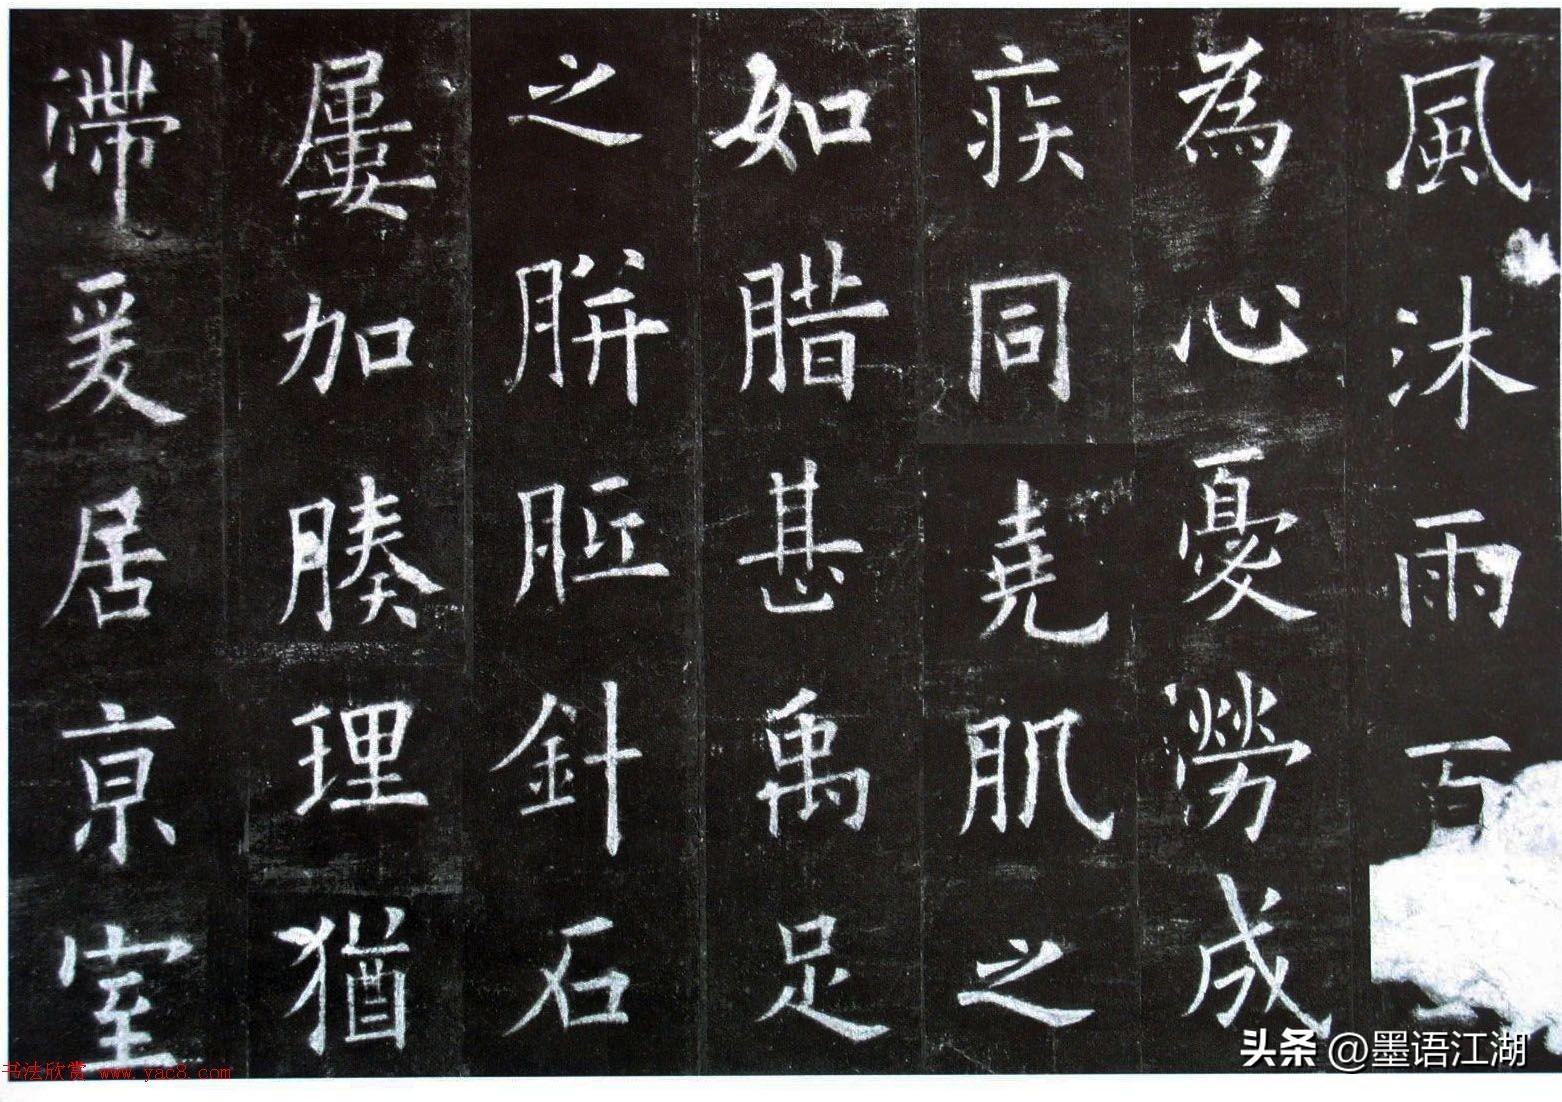 風沐雨百
為心憂勞成
疾同堯肌之
如腊甚禹足
之胼胝針石
屢加腠理猶
滯爰居京室
头条 @墨语江湖
书法欣赏 www.yac8.com